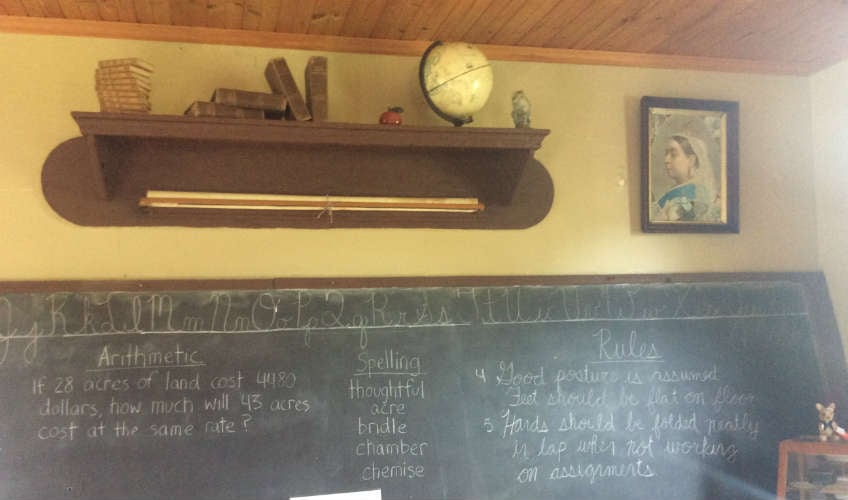 J j K k L l M m N n O o P p Q q R r S s T t U u V v W w X x
Arithmetic
If 28 acres of land cost 4480
dollars, how much will 43 acres
cost at the same rate?
Spelling
thoughtful
acre
bridle
chamber
chemise
Rules
4 Good posture is assumed
Feet should be flat on floor
5 Hands should be folded neatly
in lap when not working
on assignments.